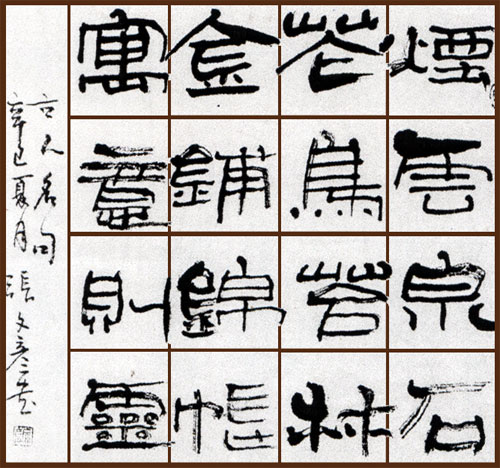 煙雲泉石
花鳥苔林
金鋪錦帳
寓意則靈
古人名句
辛巳夏月張文彥書